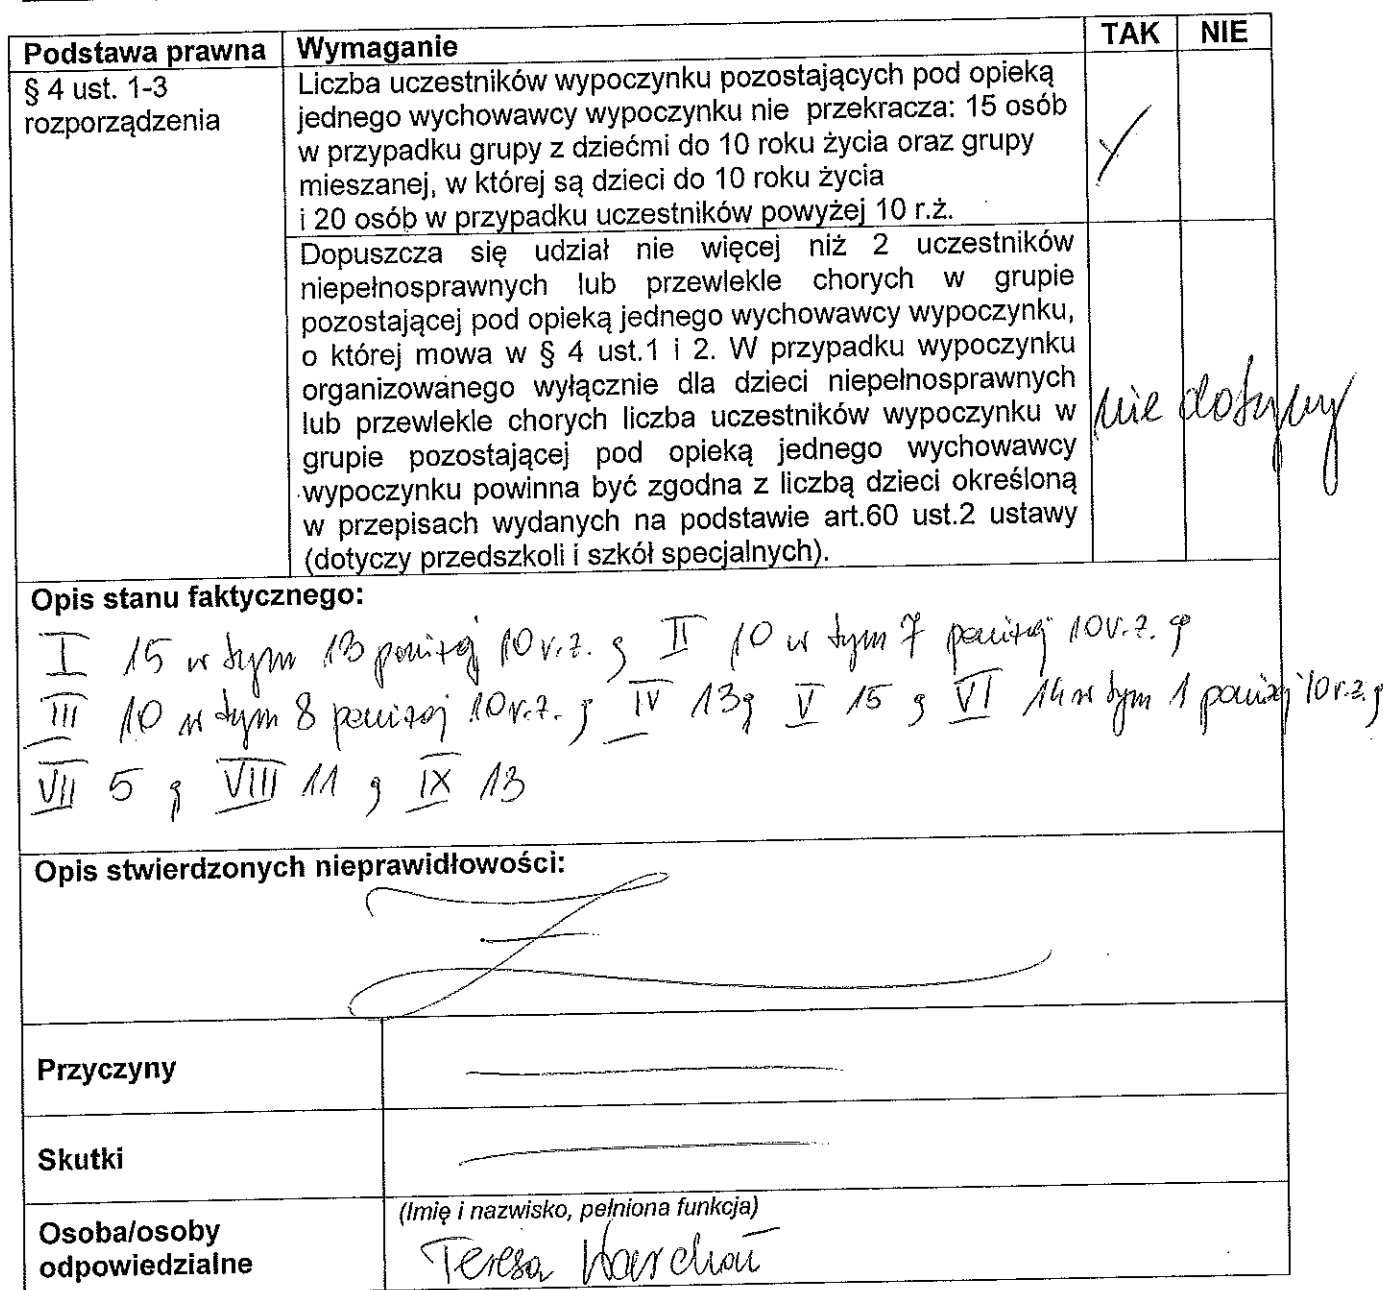 Podstawa prawna Wymaganie TAK NIE
§ 4 ust. 1-3
rozporządzenia
Liczba uczestników wypoczynku pozostających pod opieką
jednego wychowawcy wypoczynku nie przekracza: 15 osób
w przypadku grupy z dziećmi do 10 roku życia oraz grupy
mieszanej, w której są dzieci do 10 roku życia
i 20 osób w przypadku uczestników powyżej 10 r.ż.
Dopuszcza się udział nie więcej niż 2 uczestników
niepełnosprawnych lub przewlekle chorych w grupie
pozostającej pod opieką jednego wychowawcy wypoczynku,
o której mowa w § 4 ust.1 i 2. W przypadku wypoczynku
organizowanego wyłącznie dla dzieci niepełnosprawnych
lub przewlekle chorych liczba uczestników wypoczynku w
grupie pozostającej pod opieką jednego wychowawcy
wypoczynku powinna być zgodna z liczbą dzieci określoną
w przepisach wydanych na podstawie art.60 ust.2 ustawy
(dotyczy przedszkoli i szkół specjalnych).
nie dotyczy
Opis stanu faktycznego:
I 15 w tym 13 poniżej 10 r.ż. ; II 10 w tym 7 poniżej 10 r.ż. ;
III 10 w tym 8 poniżej 10 r.ż. ; IV 13; V 15 ; VI 14 w tym 1 poniżej 10 r.ż. ;
VII 5 ; VIII 11 ; IX 13
Opis stwierdzonych nieprawidłowości:
Przyczyny
Skutki
Osoba/osoby
odpowiedzialne
(Imię i nazwisko, pełniona funkcja)
Teresa